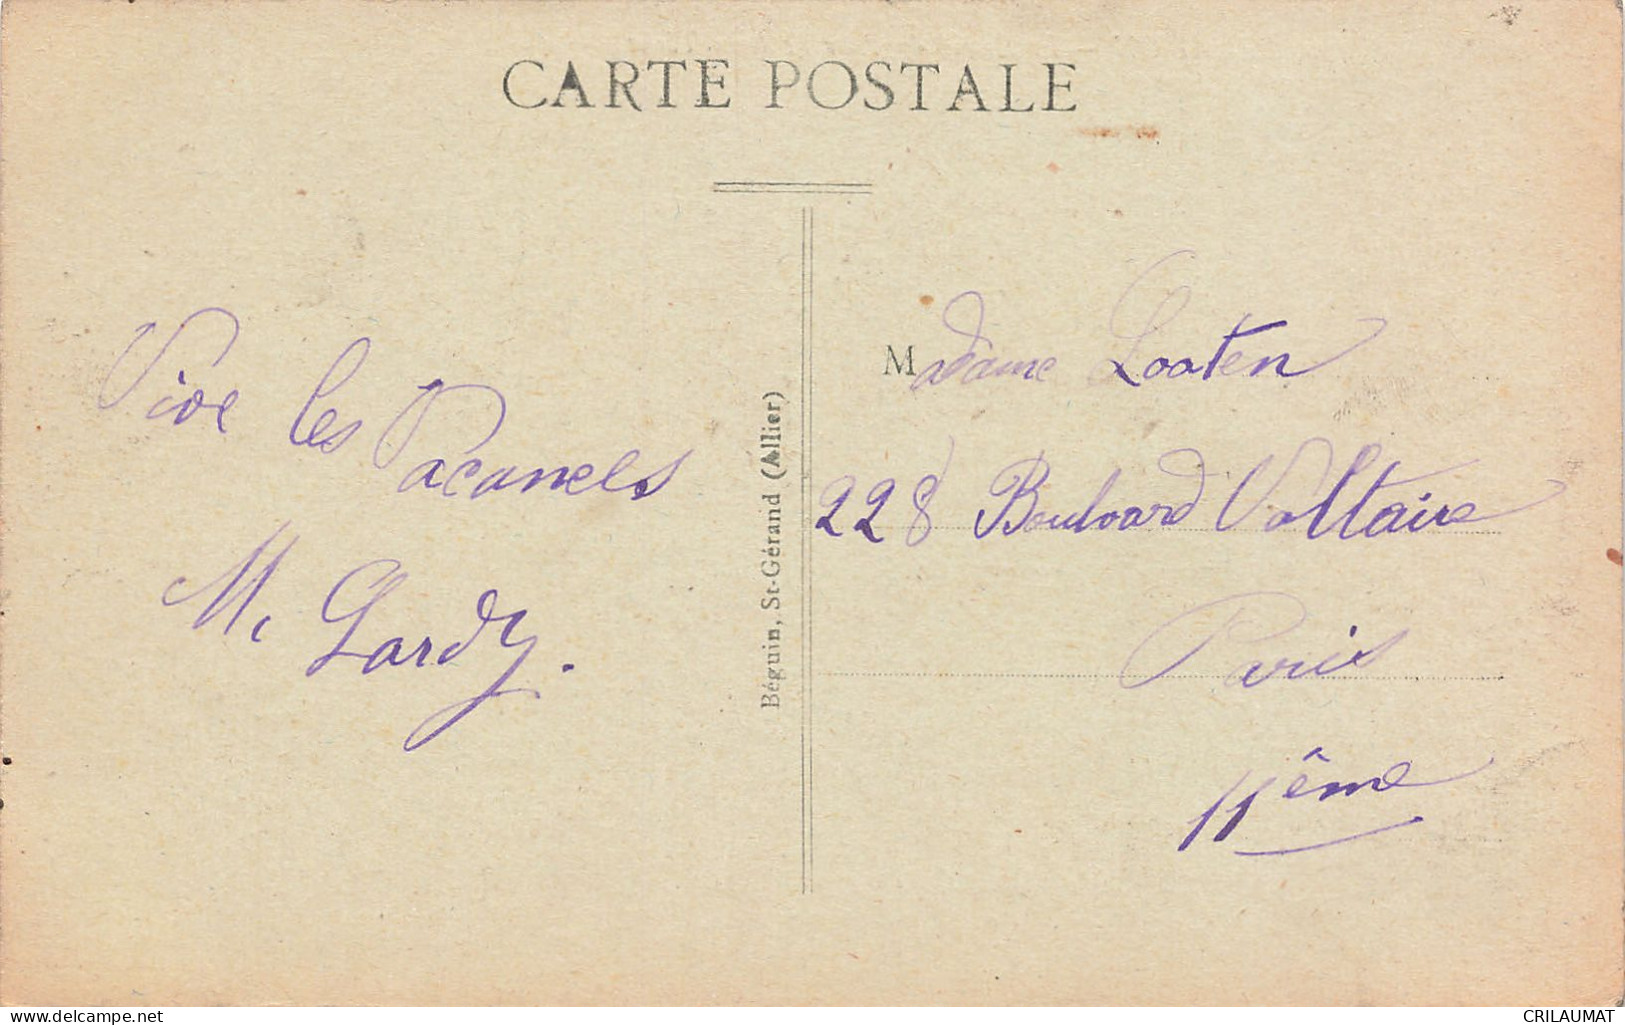 CARTE POSTALE
Vive les
Vacances
M. Lardy.
Béguin, St-Gérand (Allier)
Madame Looten
228 Boulvard Voltaire
Paris
11ème
www.delcampe.net
CRILAUMAT